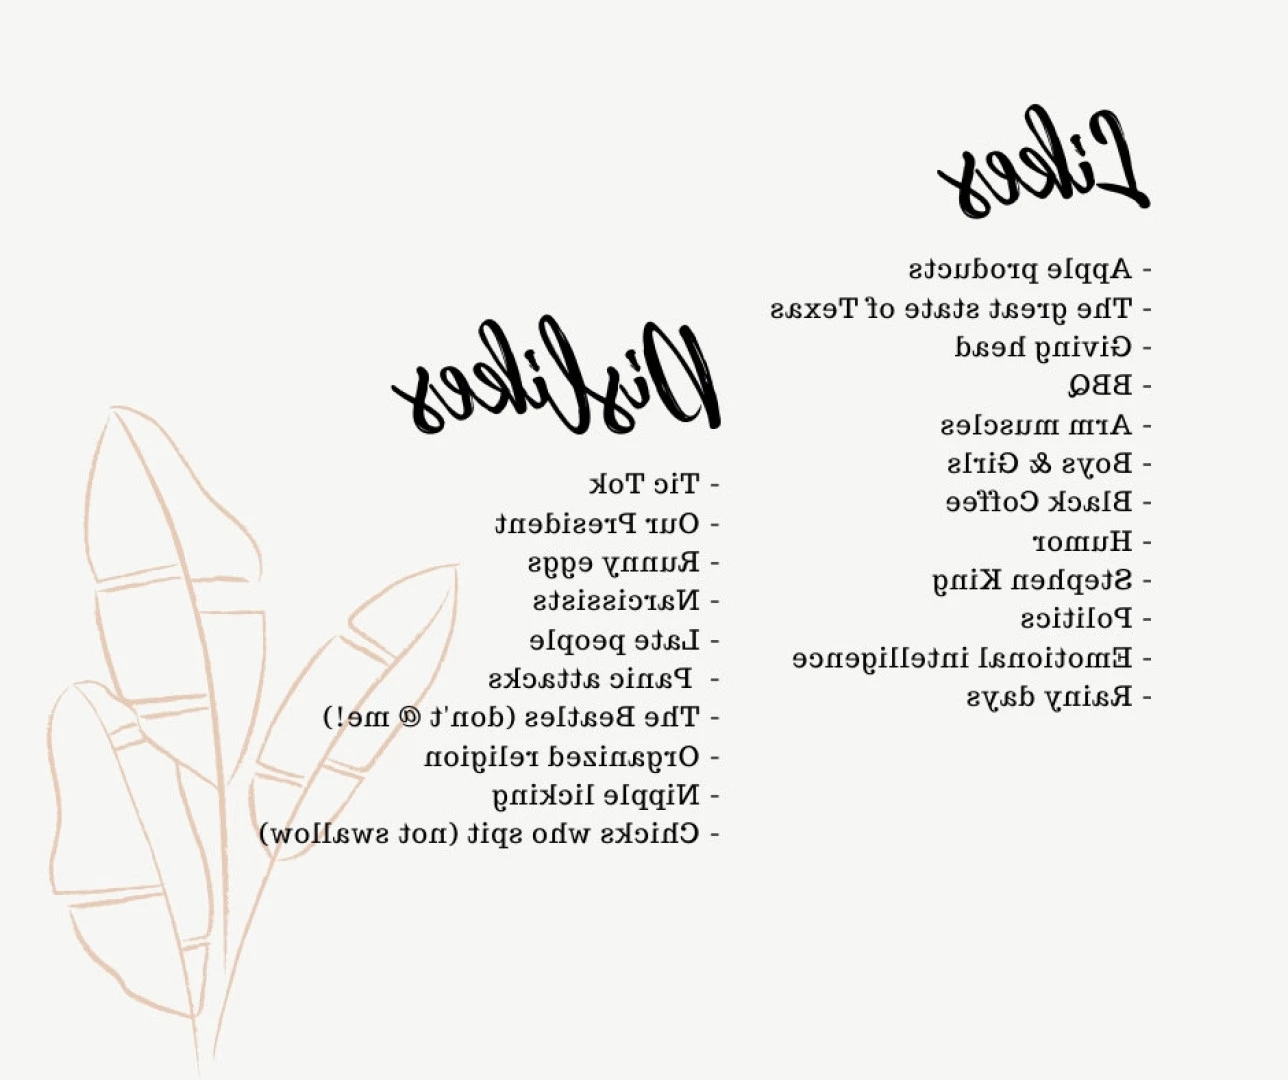 Likes
- Apple products
- The great state of Texas
- Giving head
- BBQ
- Arm muscles
- Boys & Girls
- Black Coffee
- Humor
- Stephen King
- Politics
- Emotional intelligence
- Rainy days
Dislikes
- Tic Tok
- Our President
- Runny eggs
- Narcissists
- Late people
- Panic attacks
- The Beatles (don't @ me!)
- Organized religion
- Nipple licking
- Chicks who spit (not swallow)